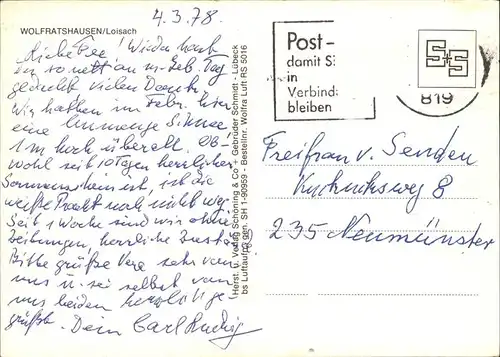 4.3.78.
WOLFRATSHAUSEN/Loisach
Liebe Fee! Wieder hast
Du so nett an m. Geb. Tag
gedacht vielen Dank.
Wir hatten im Febr. hier
eine Unmenge Schnee
1m hoch überall. Ob-
wohl seit 10 Tagen herrlicher
Sonnenschein ist, ist die
weiße Pracht noch nicht weg.
Seit 1 Woche sind wir ohne
Zeitungen, herrliche Zustände
Bitte grüße Vera sehr von
uns u. sei selbst von
uns beiden herzlich ge-
grüßt. Dein Carl Ludwig
Herst. u. Verlag Schöning & Co + Gebrüder Schmidt - Lübeck
bs Luftaufn. gen. SH 1-90959 - Bestellnr. Wolfra Luft RS 5016
Post-
damit S
in
Verbind
bleiben
S+S
819
Freifrau v. Senden
Kuckucksweg 8
235 Neumünster